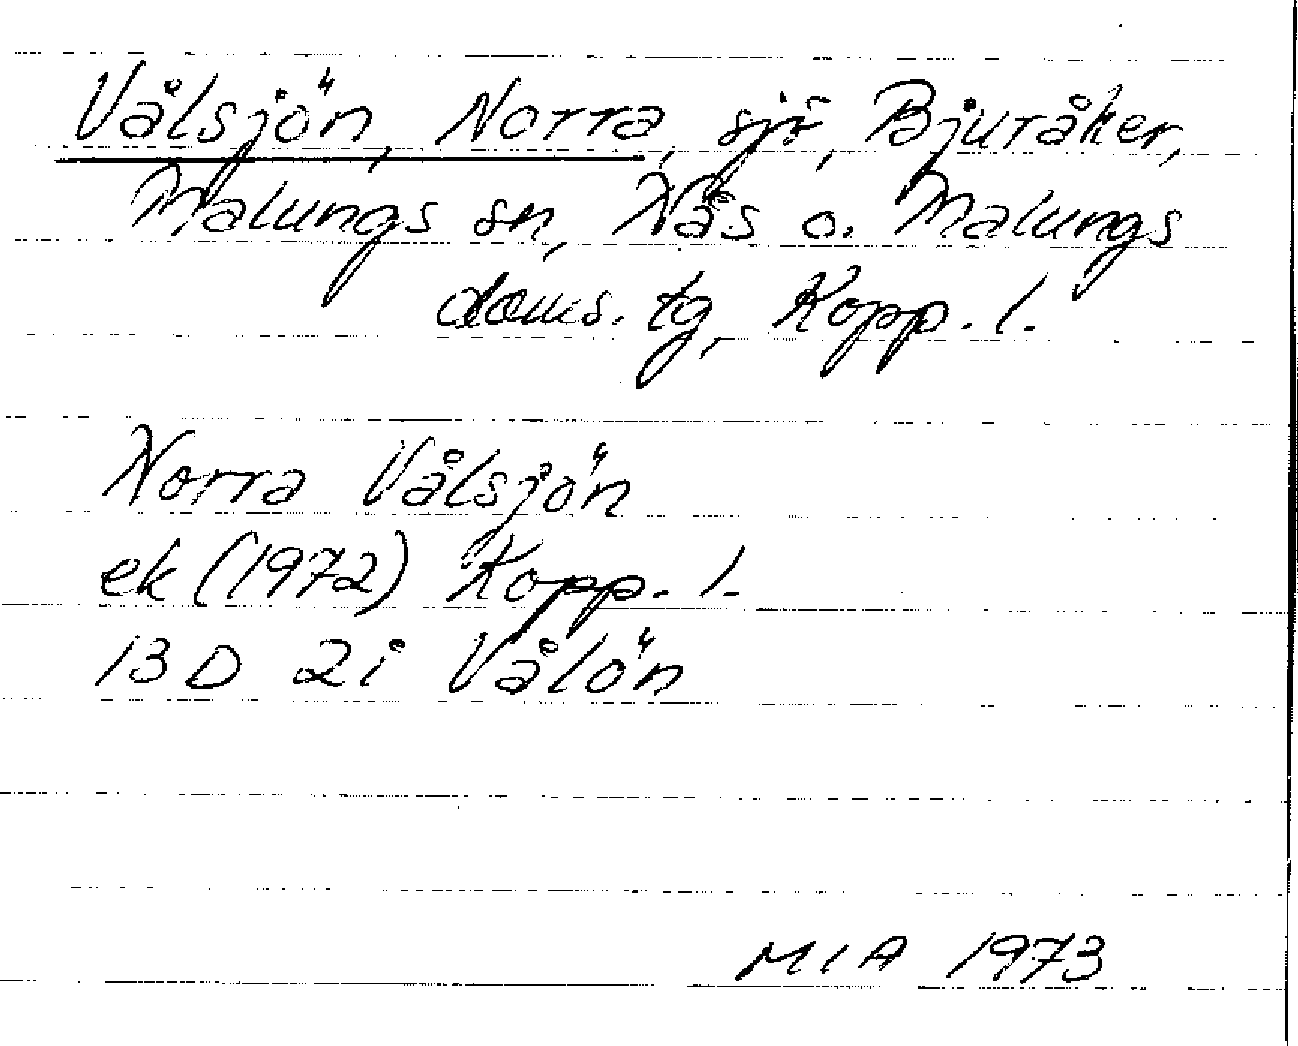 Vålsjön, Norra, sjö, Bjuråker,
Malungs sn, Nås o. Malungs
doms. tg, Kopp. l.
Norra Vålsjön
ek (1972) Kopp. l.
13 D 2i Vålön
MIA 1973